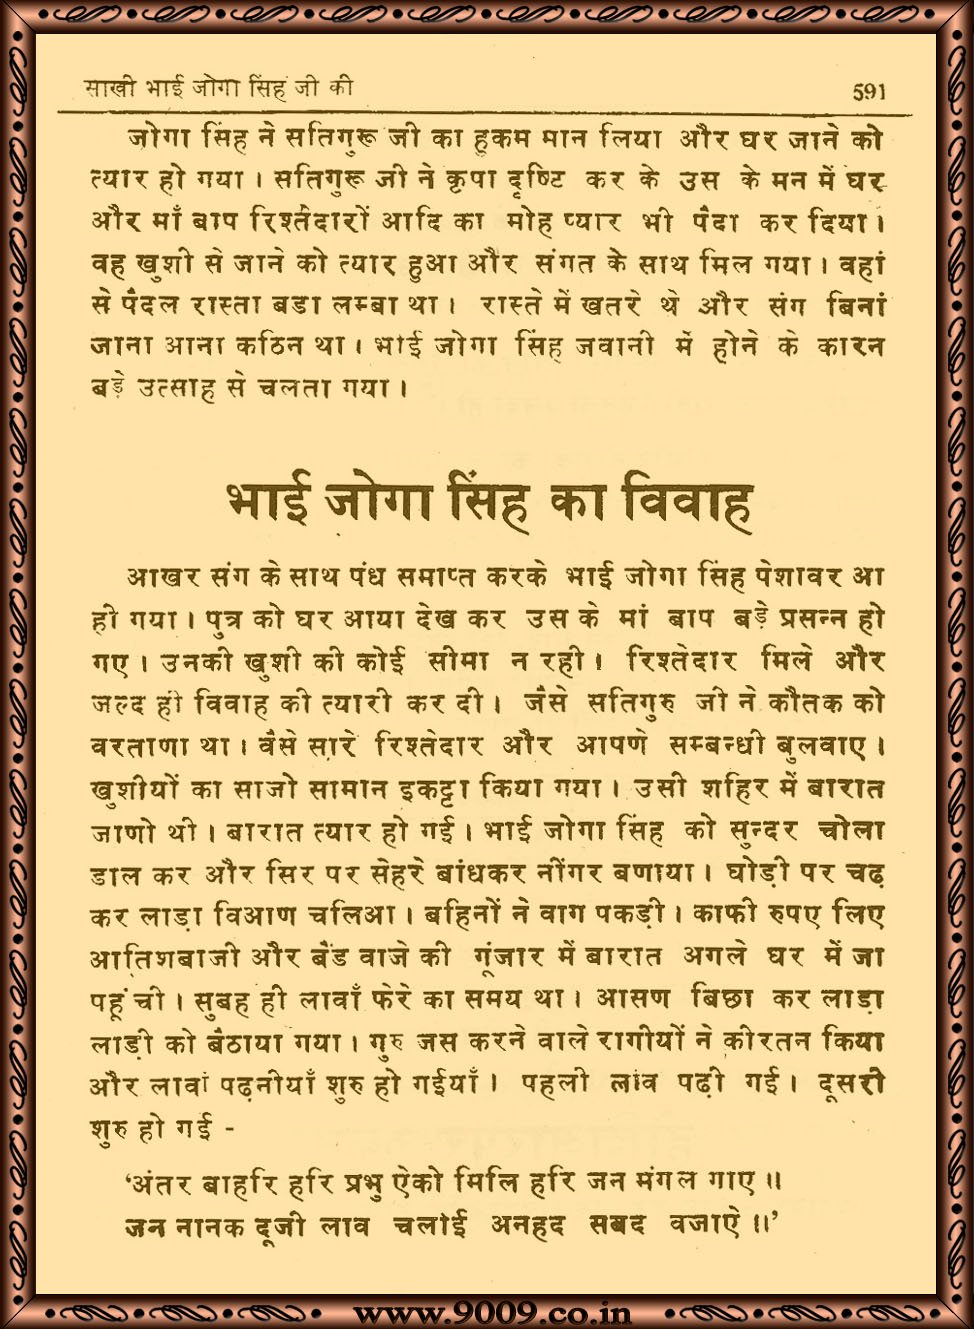 साखी भाई जोगा सिंह जी की 591
जोगा सिंह ने सतिगुरू जी का हुकम मान लिया और घर जाने को
त्यार हो गया । सतिगुरू जी ने कृपा दृष्टि कर के उस के मन में घर
और माँ बाप रिश्तेदारों आदि का मोह प्यार भी पैदा कर दिया ।
वह खुशी से जाने को त्यार हुआ और संगत के साथ मिल गया । वहां
से पैदल रास्ता बडा लम्बा था । रास्ते में खतरे थे और संग बिनां
जाना आना कठिन था । भाई जोगा सिंह जवानी में होने के कारन
बड़े उत्साह से चलता गया ।
भाई जोगा सिंह का विवाह
आखर संग के साथ पंध समाप्त करके भाई जोगा सिंह पेशावर आ
ही गया । पुत्र को घर आया देख कर उस के मां बाप बड़े प्रसन्न हो
गए । उनकी खुशी की कोई सीमा न रही । रिश्तेदार मिले और
जल्द ही विवाह की त्यारी कर दी । जैसे सतिगुरु जी ने कौतक को
वरताणा था । वैसे सारे रिश्तेदार और आपणे सम्बन्धी बुलवाए ।
खुशीयों का साजो सामान इकट्टा किया गया । उसी शहिर में बारात
जाणी थी । बारात त्यार हो गई । भाई जोगा सिंह को सुन्दर चोला
डाल कर और सिर पर सेहरे बांधकर नींगर बणाया । घोड़ी पर चढ़
कर लाड़ा विआण चलिआ । बहिनों ने वाग पकड़ी । काफी रुपए लिए
आतिशबाजी और बैंड वाजे की गूंजार में बारात अगले घर में जा
पहूंची । सुबह ही लावाँ फेरे का समय था । आसण बिछा कर लाड़ा
लाड़ी को बैठाया गया । गुरु जस करने वाले रागीयों ने कीरतन किया
और लावां पढ़नीयाँ शुरु हो गईयाँ । पहली लांव पढ़ी गई । दूसरी
शुरु हो गई -
'अंतर बाहरि हरि प्रभु ऐको मिलि हरि जन मंगल गाए ॥
जन नानक दूजी लाव चलाई अनहद सबद वजाऐ ॥'
www.9009.co.in